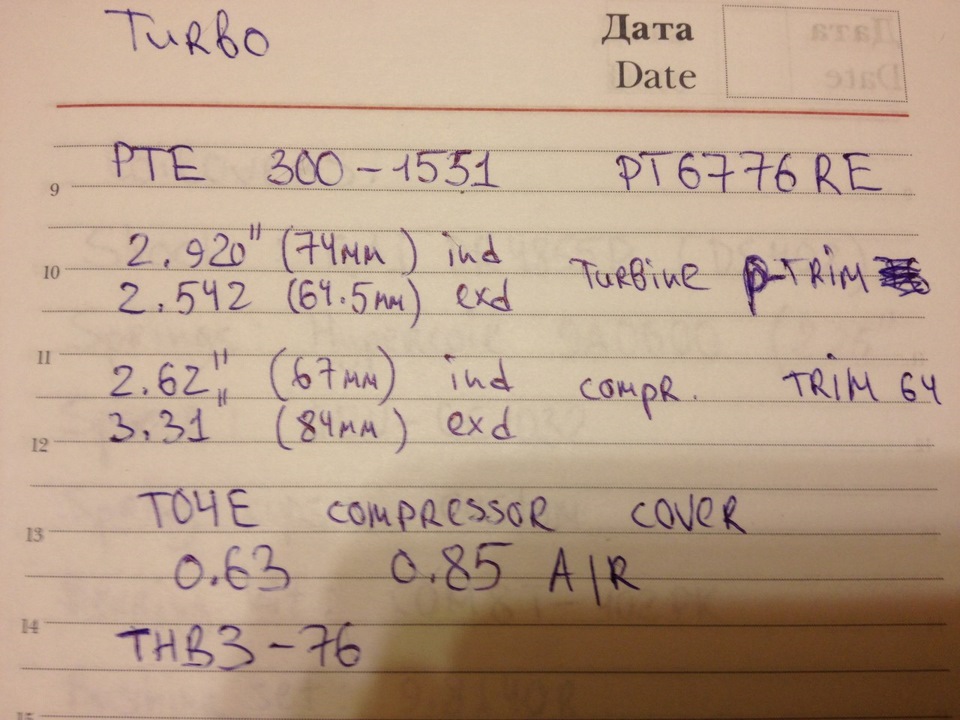 Turbo
Дата
Date
PTE 300-1551 PT6776RE
9
2.920" (74мм) ind
10 Turbine p-TRiM
2.542 (64.5мм) exd
11
2.62" (67мм) ind compr. TRIM 64
3.31" (84мм) exd
12
TO4E compressor cover
13
0.63 0.85 A/R
14
THB3-76
15